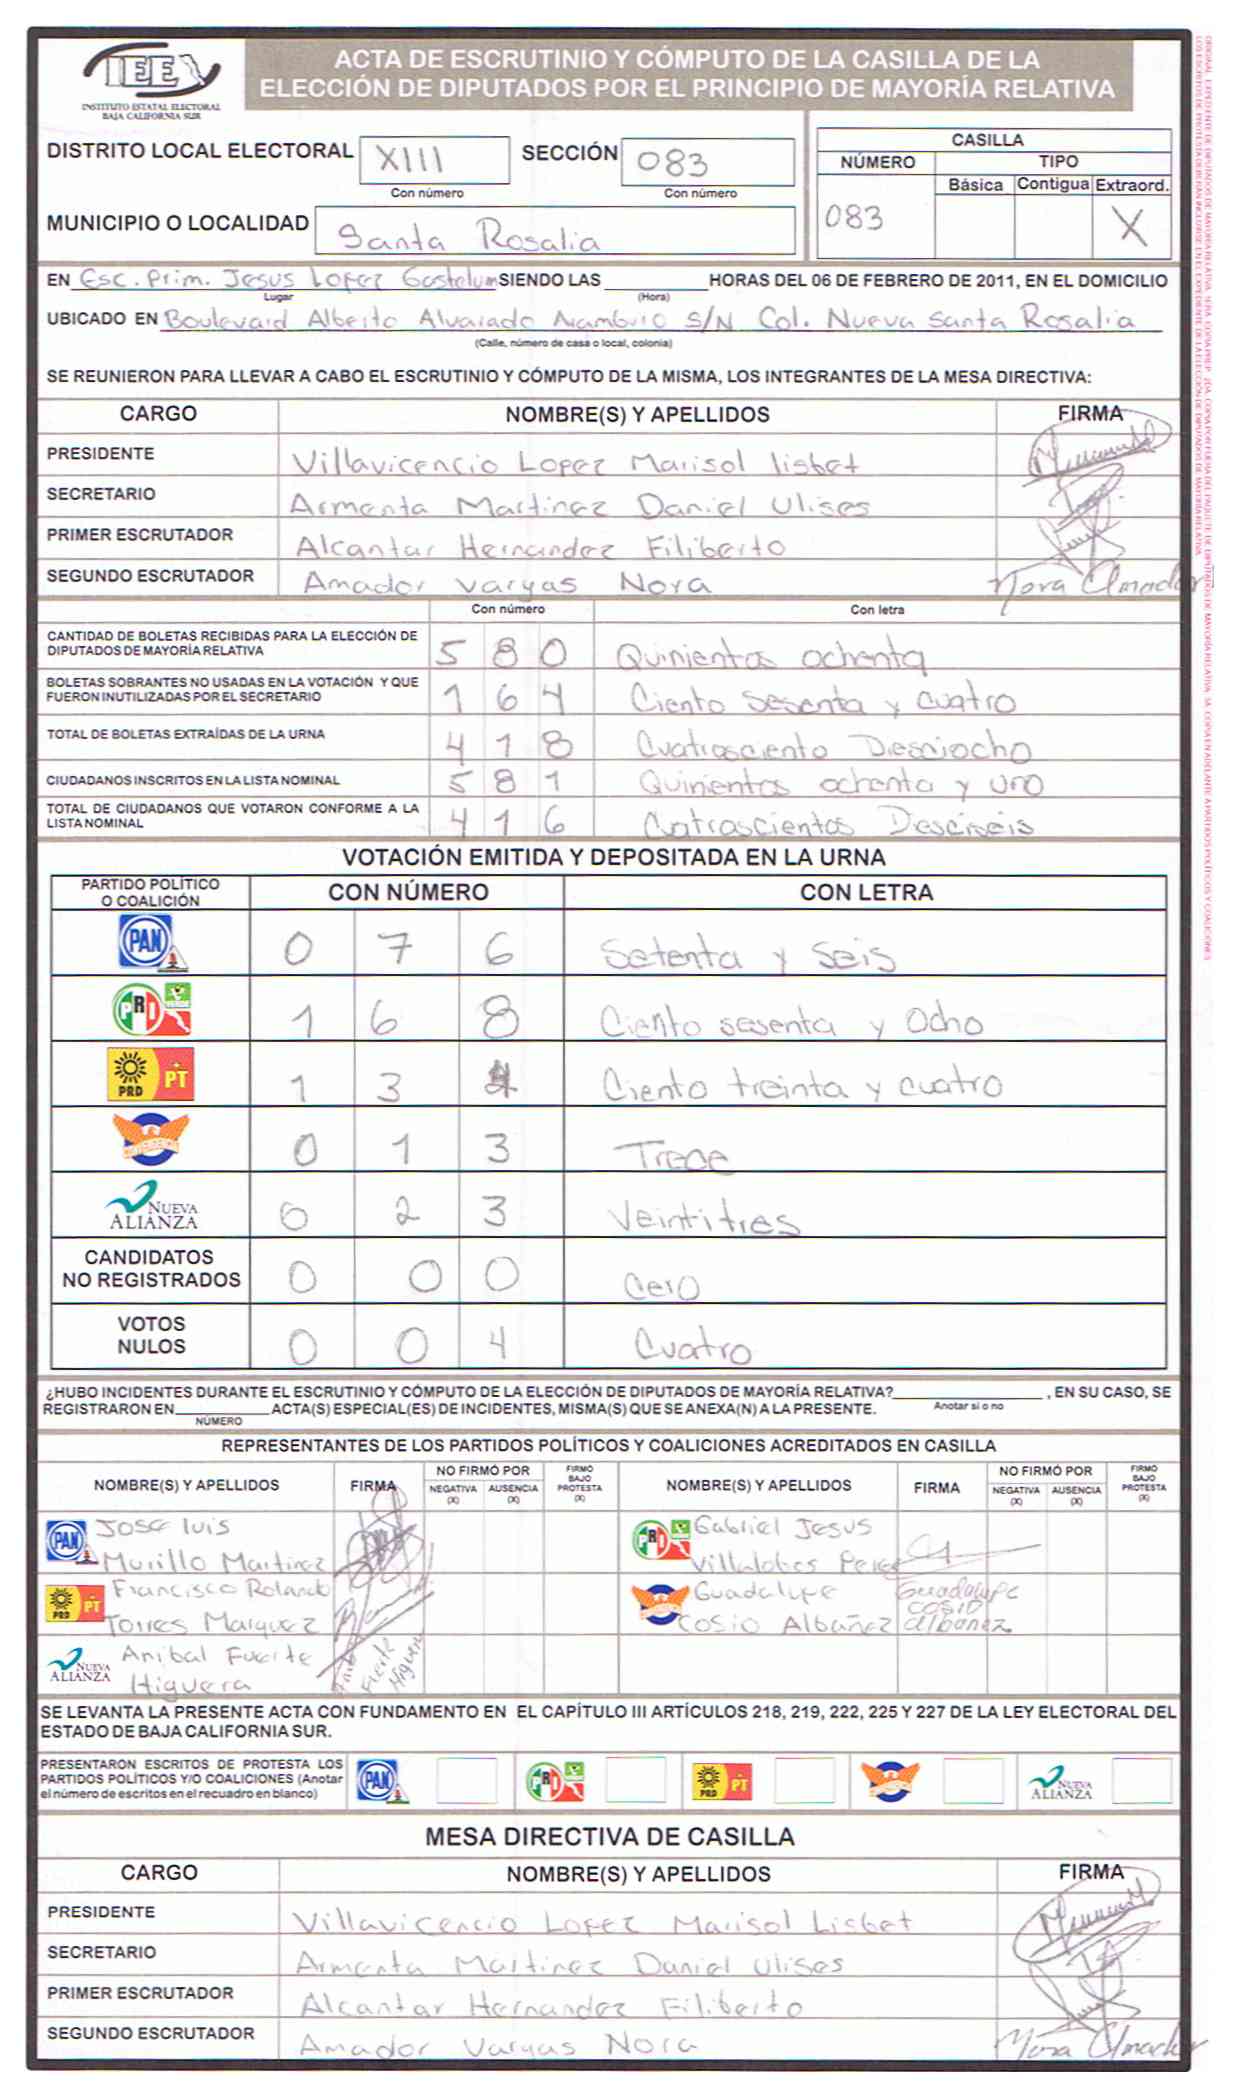 IEE
INSTITUTO ESTATAL ELECTORAL
BAJA CALIFORNIA SUR
ACTA DE ESCRUTINIO Y CÓMPUTO DE LA CASILLA DE LA
ELECCIÓN DE DIPUTADOS POR EL PRINCIPIO DE MAYORÍA RELATIVA
DISTRITO LOCAL ELECTORAL XIII SECCIÓN 083
Con número Con número
MUNICIPIO O LOCALIDAD Santa Rosalia
CASILLA
NÚMERO TIPO
Básica Contigua Extraord.
083 X
EN Esc. Prim. Jesus Lopez Gastelum SIENDO LAS ________ HORAS DEL 06 DE FEBRERO DE 2011, EN EL DOMICILIO
Lugar (Hora)
UBICADO EN Boulevard Alberto Alvarado Aramburo S/N Col. Nueva Santa Rosalia
(Calle, número de casa o local, colonia)
SE REUNIERON PARA LLEVAR A CABO EL ESCRUTINIO Y CÓMPUTO DE LA MISMA, LOS INTEGRANTES DE LA MESA DIRECTIVA:
CARGO NOMBRE(S) Y APELLIDOS FIRMA
PRESIDENTE Villavicencio Lopez Marisol lisbet
SECRETARIO Armenta Martinez Daniel Ulises
PRIMER ESCRUTADOR Alcantar Hernandez Filiberto
SEGUNDO ESCRUTADOR Amador Vargas Nora Nora Amador
Con número Con letra
CANTIDAD DE BOLETAS RECIBIDAS PARA LA ELECCIÓN DE
DIPUTADOS DE MAYORÍA RELATIVA 5 8 0 Quinientos ochenta
BOLETAS SOBRANTES NO USADAS EN LA VOTACIÓN Y QUE
FUERON INUTILIZADAS POR EL SECRETARIO 1 6 4 Ciento sesenta y cuatro
TOTAL DE BOLETAS EXTRAÍDAS DE LA URNA 4 1 8 Cuatrosciento Diesciocho
CIUDADANOS INSCRITOS EN LA LISTA NOMINAL 5 8 1 Quinientos ochenta y uno
TOTAL DE CIUDADANOS QUE VOTARON CONFORME A LA
LISTA NOMINAL 4 1 6 Cuatroscientos Diesciseis
VOTACIÓN EMITIDA Y DEPOSITADA EN LA URNA
PARTIDO POLÍTICO
O COALICIÓN CON NÚMERO CON LETRA
PAN 0 7 6 Setenta y Seis
PRI VERDE 1 6 8 Ciento sesenta y Ocho
PRD PT 1 3 4 Ciento treinta y cuatro
0 1 3 Trece
NUEVA ALIANZA 0 2 3 Veintitres
CANDIDATOS
NO REGISTRADOS 0 0 0 Cero
VOTOS
NULOS 0 0 4 Cuatro
¿HUBO INCIDENTES DURANTE EL ESCRUTINIO Y CÓMPUTO DE LA ELECCIÓN DE DIPUTADOS DE MAYORÍA RELATIVA?________, EN SU CASO, SE
Anotar si o no
REGISTRARON EN ________ ACTA(S) ESPECIAL(ES) DE INCIDENTES, MISMA(S) QUE SE ANEXA(N) A LA PRESENTE.
NÚMERO
REPRESENTANTES DE LOS PARTIDOS POLÍTICOS Y COALICIONES ACREDITADOS EN CASILLA
NOMBRE(S) Y APELLIDOS FIRMA NO FIRMÓ POR NEGATIVA (X) AUSENCIA (X) FIRMÓ BAJO PROTESTA (X) NOMBRE(S) Y APELLIDOS FIRMA NO FIRMÓ POR NEGATIVA (X) AUSENCIA (X) FIRMÓ BAJO PROTESTA (X)
PAN Jose luis
Murillo Martinez
PRI Gabriel Jesus
Villalobos Perez
PRD PT Francisco Rolando
Torres Marquez
Guadalupe
Cosio Albañez
Guadalupe
cosio
albanez
NUEVA ALIANZA Anibal Fuerte
Higuera
SE LEVANTA LA PRESENTE ACTA CON FUNDAMENTO EN EL CAPÍTULO III ARTÍCULOS 218, 219, 222, 225 Y 227 DE LA LEY ELECTORAL DEL
ESTADO DE BAJA CALIFORNIA SUR.
PRESENTARON ESCRITOS DE PROTESTA LOS
PARTIDOS POLÍTICOS Y/O COALICIONES (Anotar
el número de escritos en el recuadro en blanco)
PAN PRI PRD PT NUEVA ALIANZA
MESA DIRECTIVA DE CASILLA
CARGO NOMBRE(S) Y APELLIDOS FIRMA
PRESIDENTE Villavicencio Lopez Marisol Lisbet
SECRETARIO Armenta Martinez Daniel Ulises
PRIMER ESCRUTADOR Alcantar Hernandez Filiberto
SEGUNDO ESCRUTADOR Amador Vargas Nora Nora Amador